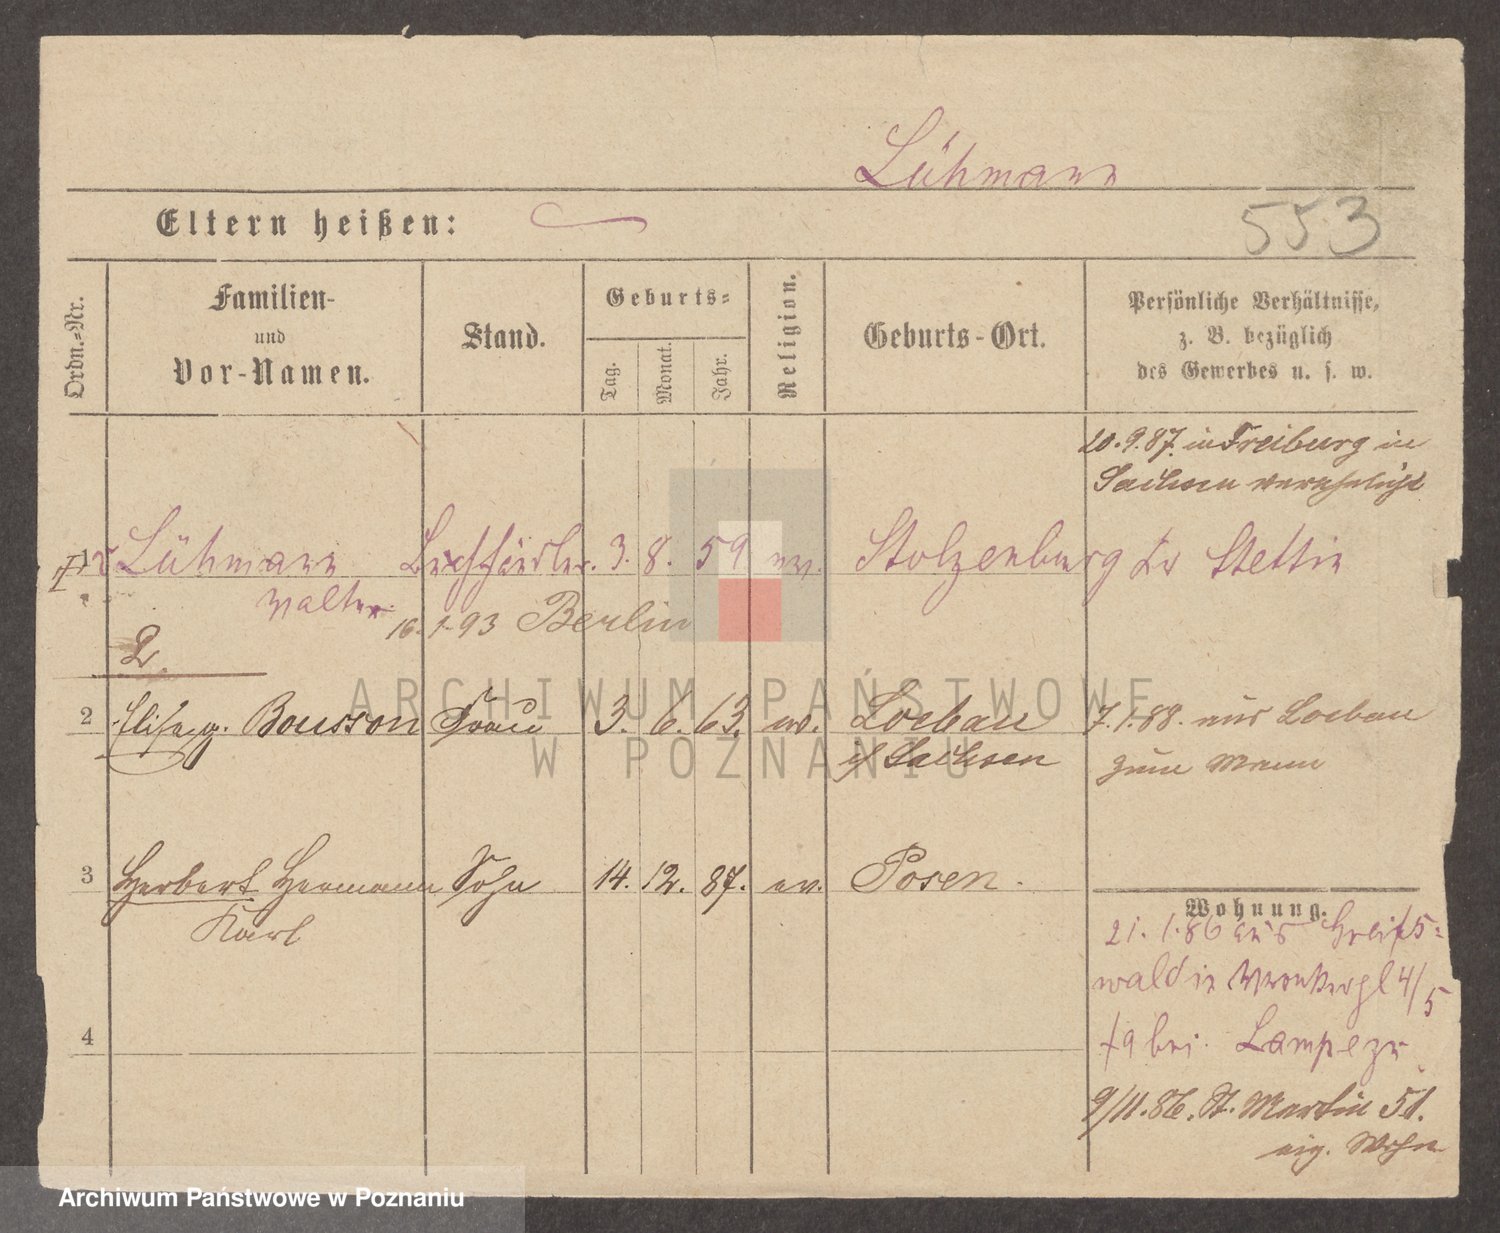 Lühmann
Eltern heißen:
553
Ordn.-Nr.
Familien-
und
Vor-Namen.
Stand.
Geburts-
Tag.
Monat.
Jahr.
Religion.
Geburts-Ort.
Persönliche Verhältnisse,
z. B. bezüglich
des Gewerbes u. s. w.
20.9.87. in Freiburg in
Sachsen verehelicht
1 Lühmann Buchhändler. 3. 8. 59 ev. Stolzenburg Kr Stettin
Walter
16. 1. 93 Berlin
2 g. Bousson Frau 3. 6. 63. ev. Loebau 7.1.88. aus Loebau
i/ Sachsen zum Mann
3 Herbert Hermann Sohn 14. 12. 87. ev. Posen.
Karl
Wohnung.
21. 1. 86 aus Greifs=
wald in 4/5
bei
4
9/11.86. St. Martin 51.
eig. Wohn
ARCHIWUM PAŃSTWOWE
W POZNANIU
Archiwum Państwowe w Poznaniu